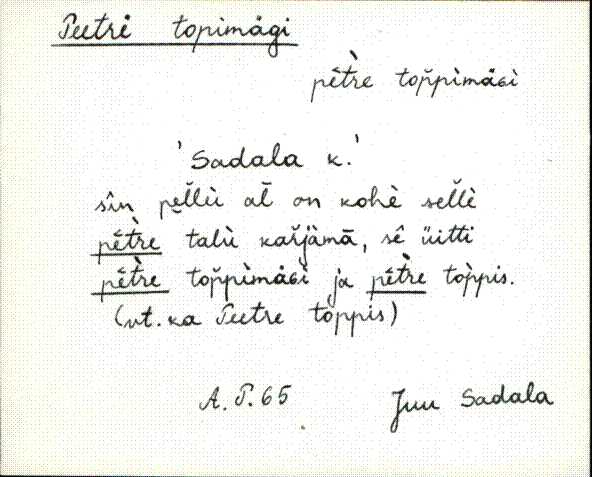 Peetri topimägi
pèt̆re top̆pìmäGì
'Sadala k.'
sîn pel̆lù al̆ on kohè sel̆lè
pèt̆re talù kar̆jämā, sê üitti
pèt̆re top̆pìmäGì ja pèt̆re tòppis.
(vt. ka Peetre toppis)
A.P.65 Juu Sadala